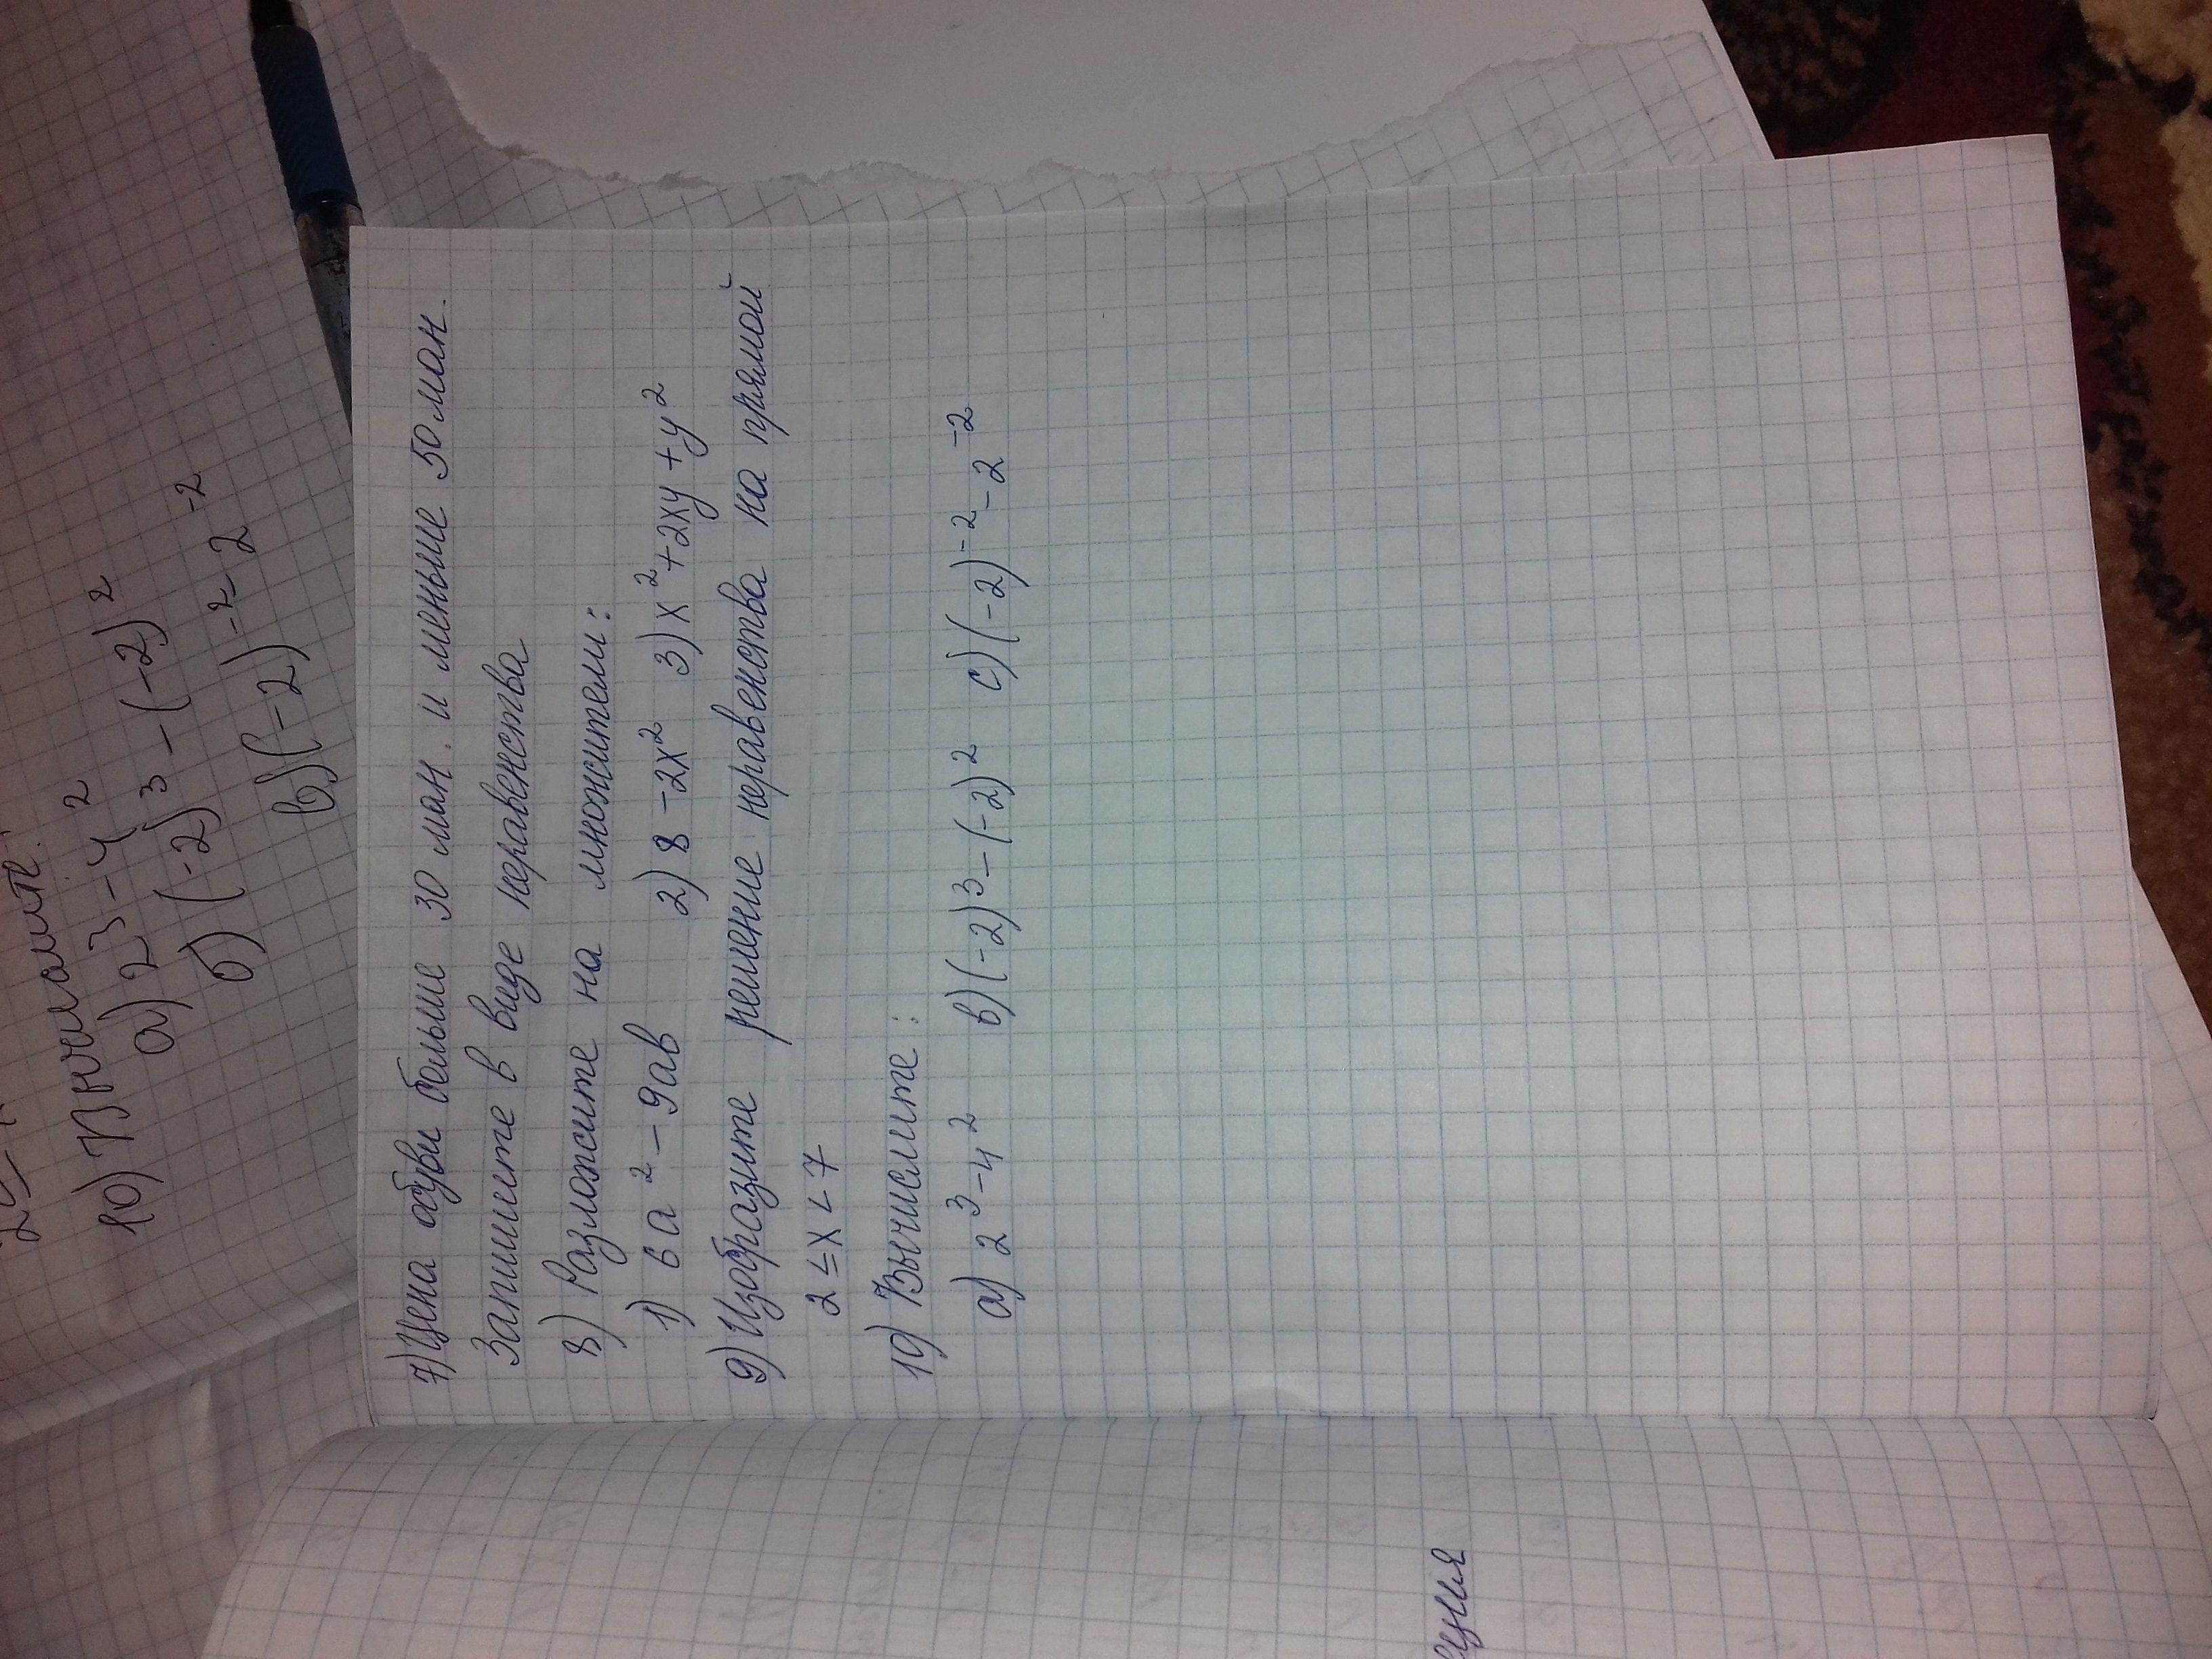 10) Вычислите:
а) 2³-4²
б) (-2)³-(-2)²
в) (-2)⁻² 2⁻²
7) Цена обуви больше 30 ман. и меньше 50 ман.
Запишите в виде неравенства
8) Разложите на множители:
1) 6а²-9ав 2) 8-2х² 3) х²+2ху+у²
9) Изобразите решение неравенства на прямой
2≤х<7
10) Вычислите:
а) 2³-4² в) (-2)³-(-2)² с) (-2)⁻²-2⁻²